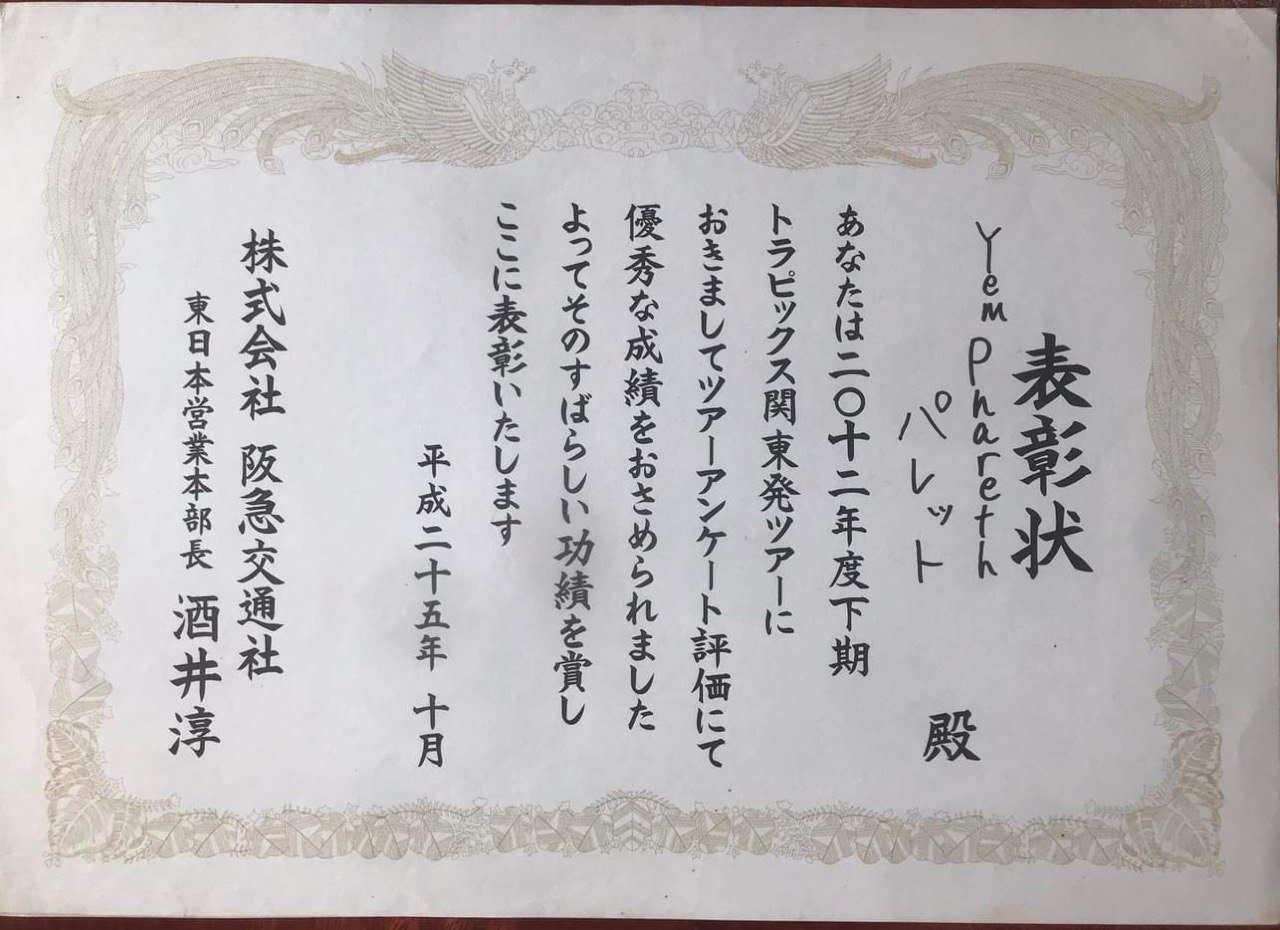 表彰状
Yem Phareth
パレット 殿
あなたは二〇十二年度下期
トラピックス関東発ツアーに
おきましてツアーアンケート評価にて
優秀な成績をおさめられました
よってそのすばらしい功績を賞し
ここに表彰いたします
平成二十五年 十月
株式会社 阪急交通社
東日本営業本部長 酒井淳